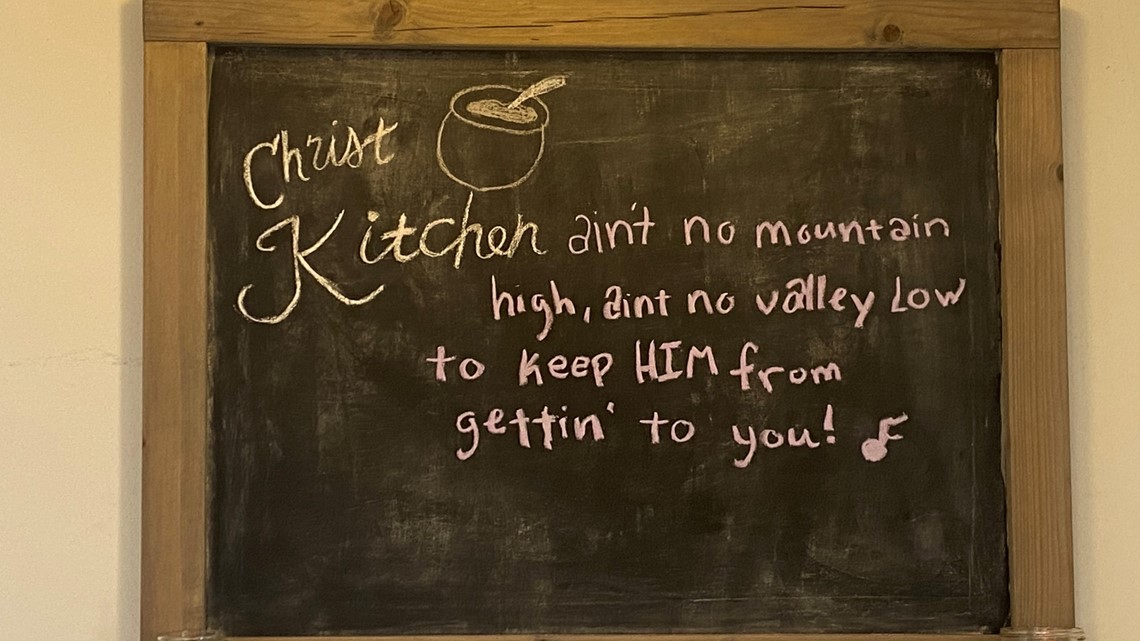 Christ
Kitchen
ain't no mountain
high, aint no valley Low
to keep HIM from
gettin' to you!